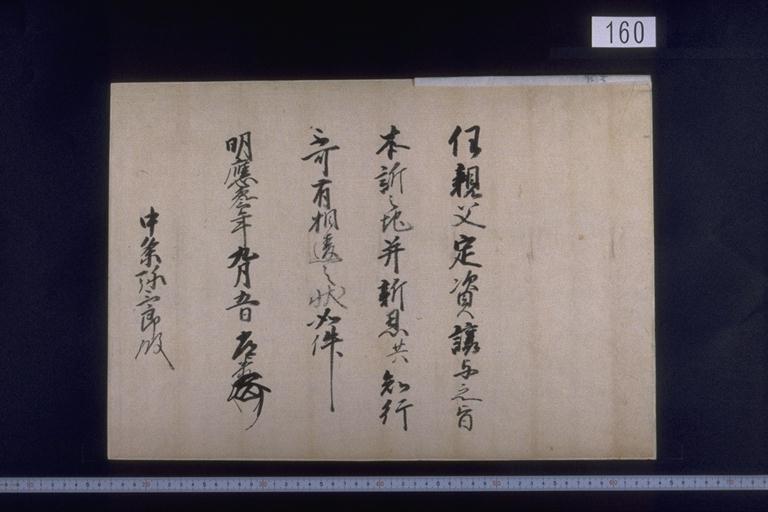 160
任親父定資譲与之旨
本訴之地并新恩共知行
不可有相違之状如件
明應参年九月五日
中条弥三郎殿